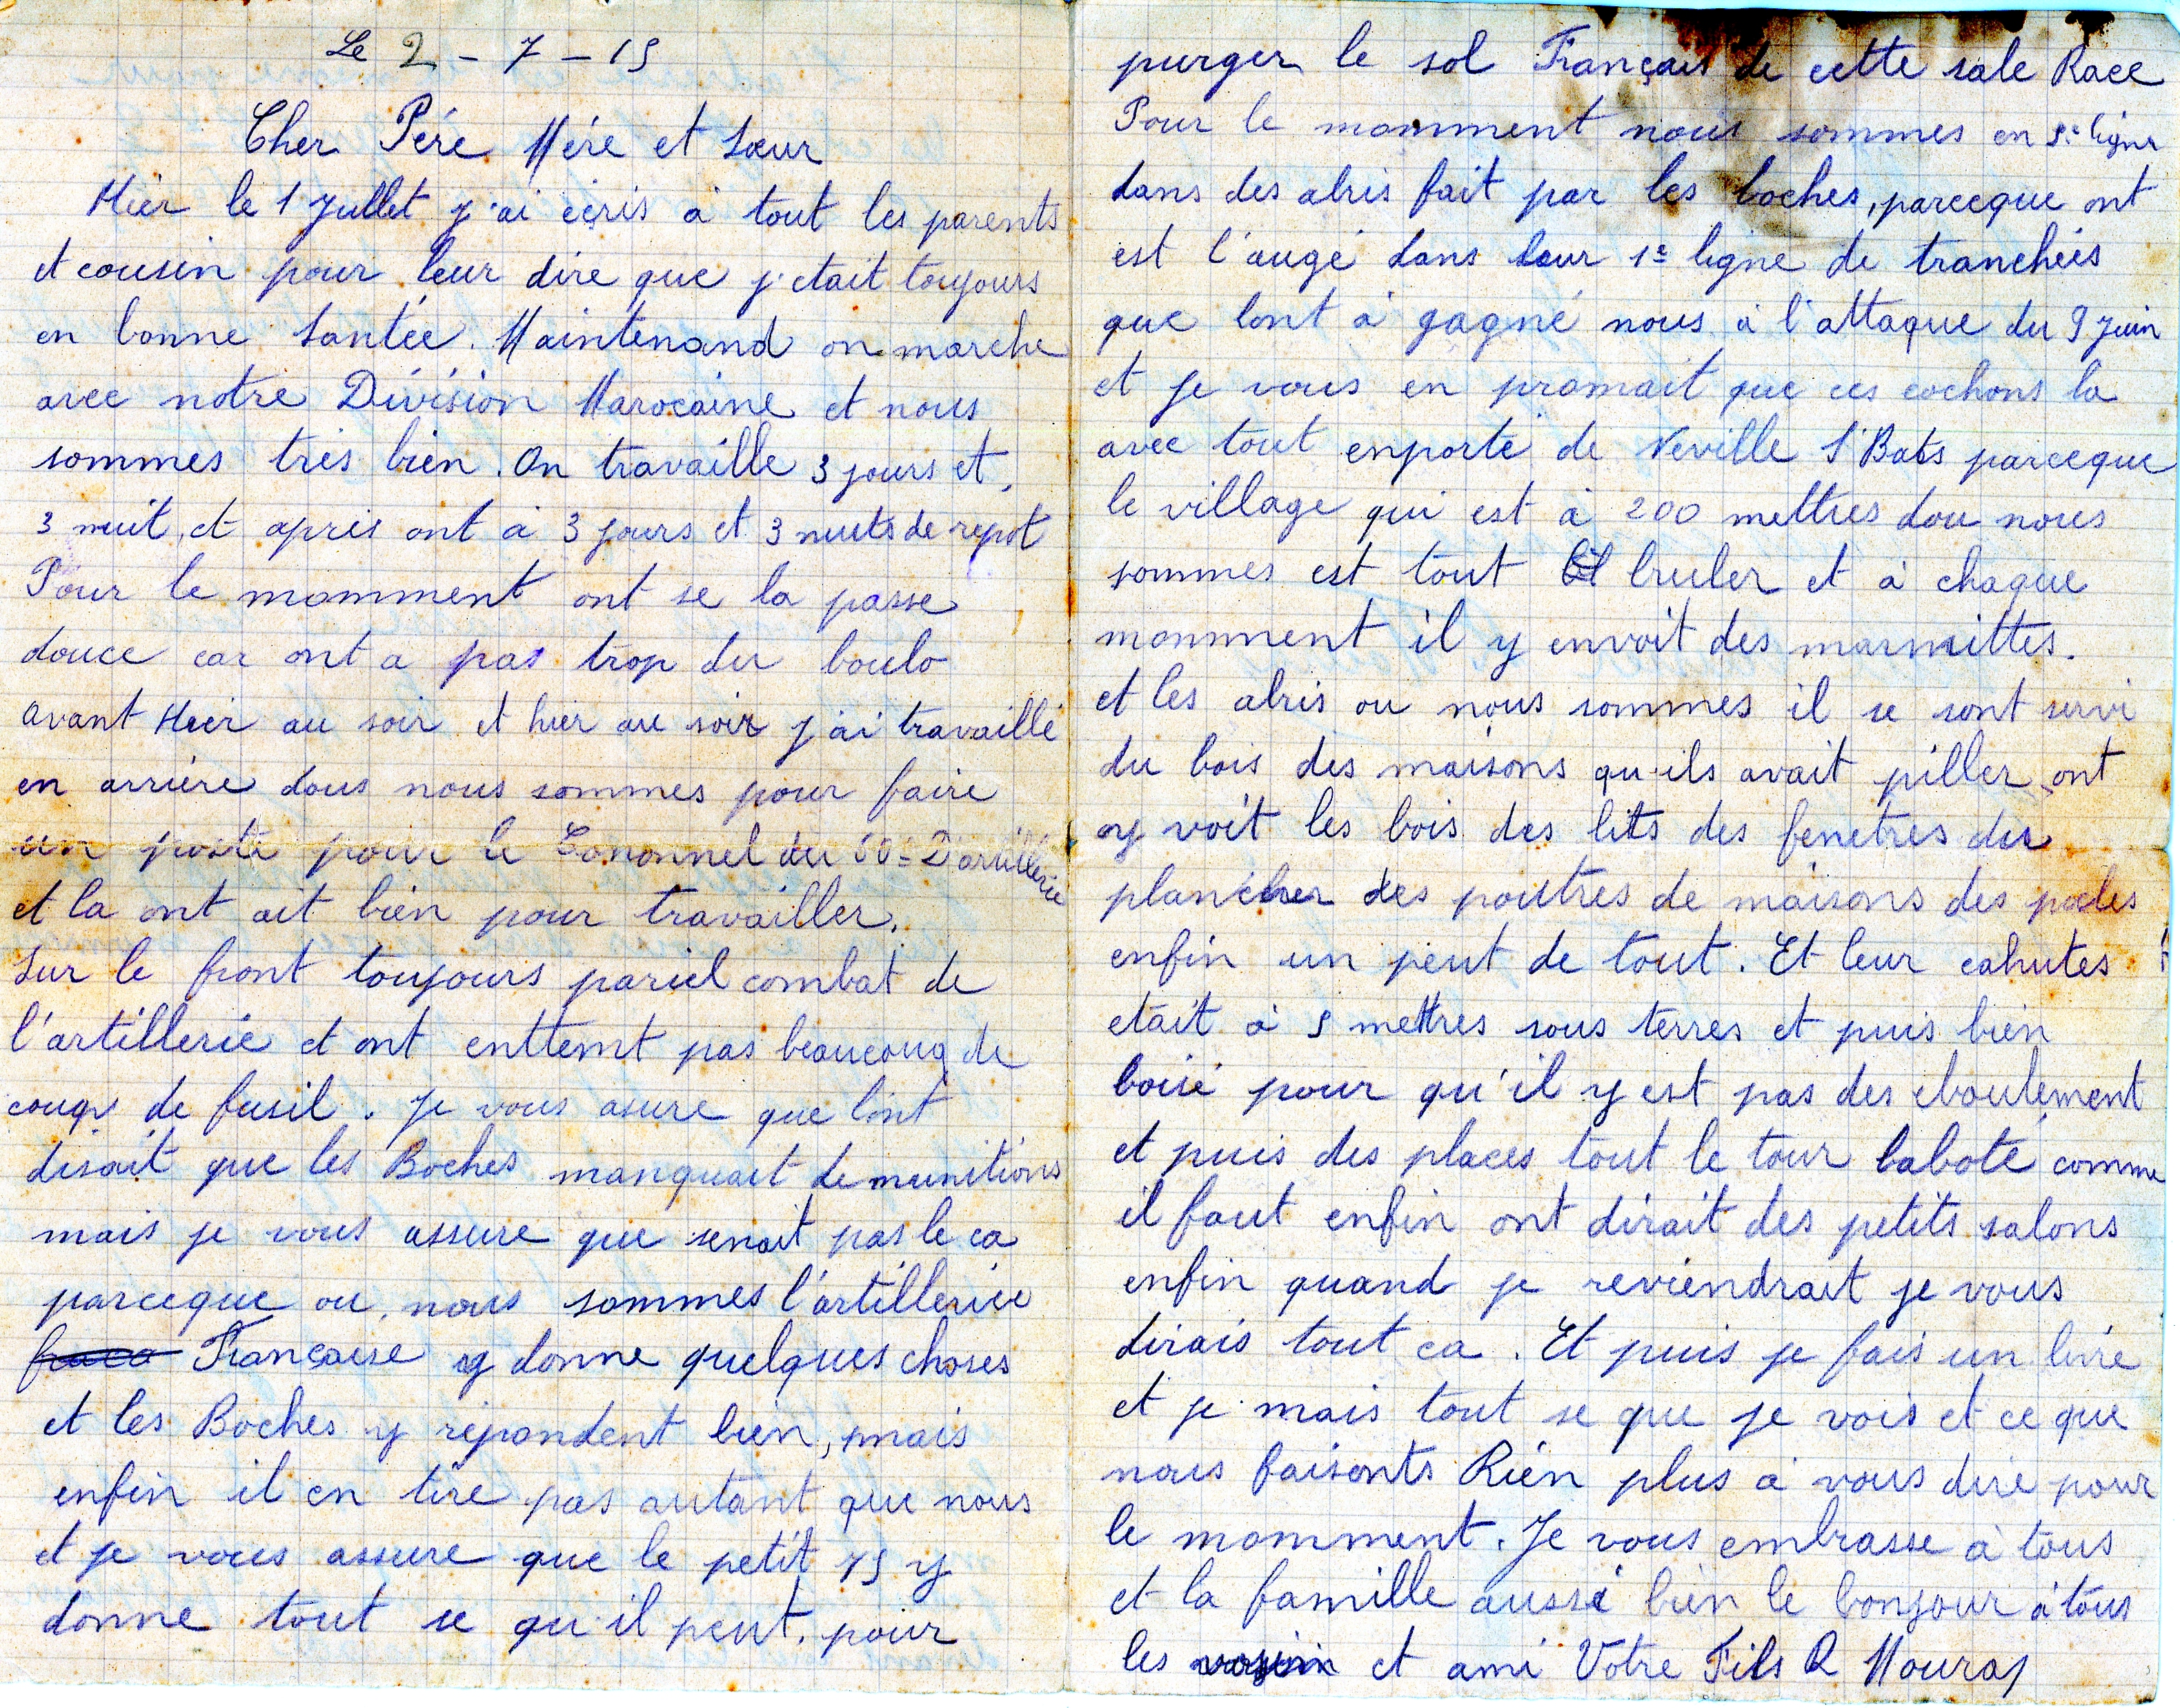 Le 2 - 7 - 15
Cher Pére Mére et Sœur
Hier le 1 Juillet j'ai écris à tout les parents
et cousin pour leur dire que j'etait toujours
en bonne Santée. Maintenand on marche
avec notre Division Marocaine et nous
sommes tres bien. On travaille 3 jours et
3 nuit, et apres ont à 3 jours et 3 nuits de repot
Pour le momment ont se la passe
douce car ont a pas trop du boulo
avant Hier au soir et hier au soir j'ai travaillé
en arriére dous nous sommes pour faire
un poste pour le Cononnel du 50e D'artillerie
et la ont ait bien pour travailler.
Sur le front toujours pariel combat de
l'artillerie et ont enttemt pas beaucoup de
coups de fusil. Je vous asure que lont
disait que les Boches manquait de munitions
mais je vous assure que senait pas le ca
parceque ou nous sommes l'artilleriee
Francaise y donne quelques choses
et les Boches y répondent bien, mais
enfin il en tire pas autant que nous
et je vous assure que le petit 75 y
donne tout se qu'il peut. pour
purger le sol Français de cette sale Race
Pour le momment nous sommes en 5e ligne
dans des abris fait par les boches, parceque ont
est l'augé dans leur 1e ligne de tranchées
que lont à gagné nous à l'attaque du 9 Juin
et je vous en promait que ces cochons la
avec tout enporté de Neville St Bats parceque
le village qui est à 200 mettres dou nous
sommes est tout bruler et à chaque
momment il y envoit des marmittes.
et les abris ou nous sommes il se sont servi
du bois des maisons qu-ils avait piller, ont
y voit les bois des lits des fenetres des
plancher des poutres de maisons des poeles
enfin un peut de tout. Et leur cahutes
etait à 5 mettres sous terres et puis bien
boisé pour qu'il y est pas des eboulement
et puis des places tout le tour raboté comme
il faut enfin ont dirait des petits salons
enfin quand je reviendrait je vous
dirais tout ca. Et puis je fais un livre
et je mais tout se que je vois et ce que
nous faisonts Rien plus à vous dire pour
le momment. Je vous embrasse à tous
et la famille aussi bien le bonjour à tous
les voisin et ami Votre Fils R Mouras